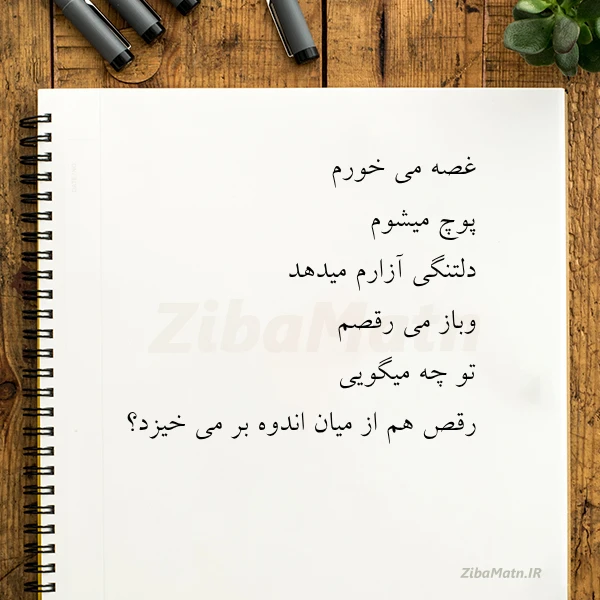 غصه می خورم
پوچ میشوم
دلتنگی آزارم میدهد
وباز می رقصم
تو چه میگویی
رقص هم از میان اندوه بر می خیزد؟
ZibaMatn
ZibaMatn.IR